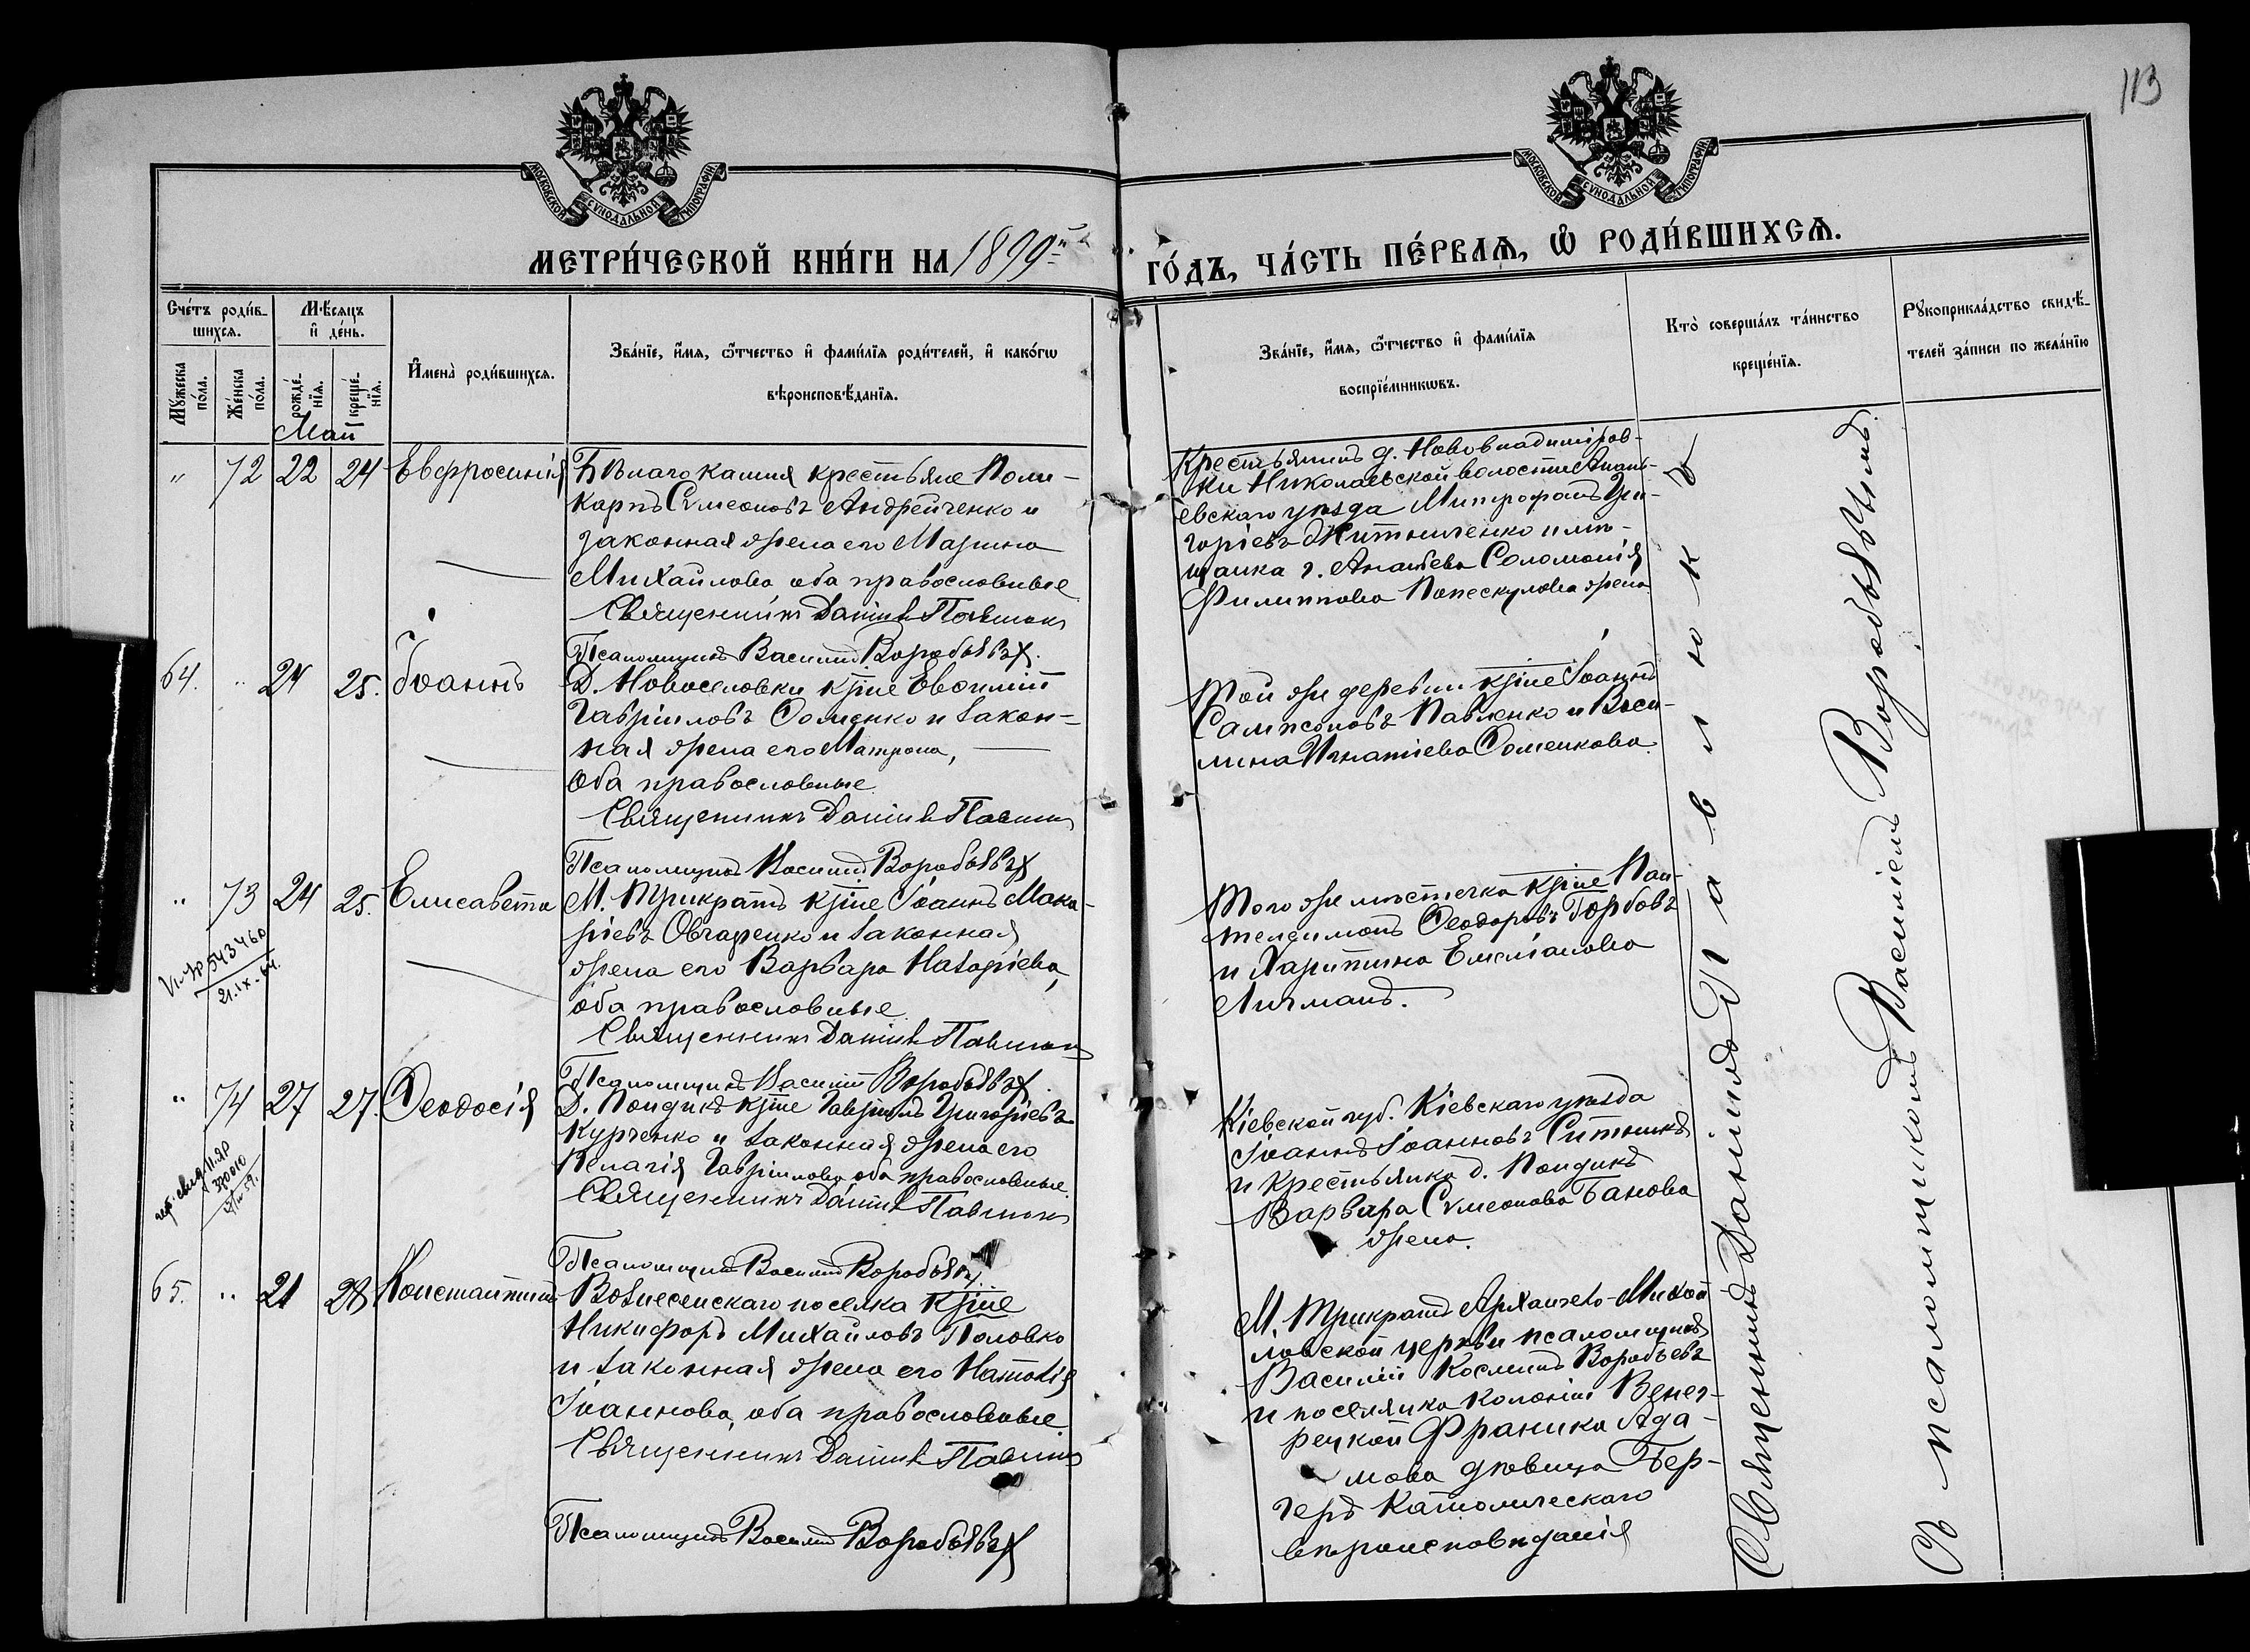 113
МОСКОВСКОЙ СѴНОДАЛЬНОЙ ТИПОГРАФІИ
МОСКОВСКОЙ СѴНОДАЛЬНОЙ ТИПОГРАФІИ
МЕТРИ́ЧЕСКОЙ КНИ́ГИ НА 1899й
ГО́ДЪ, ЧА́СТЬ ПЕ́РВАѦ, Ѡ҆ РОДИ́ВШИХСѦ.
Сче́тъ роди́в-
шихсѧ.
Мѣ́сѧцъ
и҆ де́нь.
Мꙋ́жеска
по́ла.
Же́нска
по́ла.
рожде́-
нїѧ.
креще́-
нїѧ.
И҆мена̀ роди́вшихсѧ.
Зва́нїе, и҆́мѧ, ѻ҆́тчество и҆ фами́лїѧ роди́телей, и҆ како́гѡ
вѣроисповѣ́данїѧ.
Зва́нїе, и҆́мѧ, ѻ҆́тчество и҆ фами́лїѧ
воспрїе́мникѡвъ.
Кто̀ соверша́лъ та́инство
креще́нїѧ.
Рꙋкоприкла́дство свидѣ́-
телей за́писи по жела́нїю
Май
" 72 22 24 Евфросинія
Благо Камня крестьяне Поли-
карпъ Сѵмеоновъ Андрейченко и
законная жена его Марина
Михайлова оба православные
Священникъ Даніилъ Павлюкъ
Псаломщикъ Василій Воробьевъ
Крестьянинъ д. Нововладимiров-
ки Николаевской волости Анань-
евскаго уѣзда Митрофанъ Гри-
горіевъ Житниченко и мѣ-
щанка г. Ананьева Соломонія
Филиппова Попескулова жена
64. " 24 25. Іоаннъ
Д. Новоселовки кр͞не Евѳимій
Гавріиловъ Ѳоменко и закон-
ная жена его Матрона,
оба православные
Священникъ Даніилъ Павлюкъ
Псаломщикъ Василій Воробьевъ
Той же деревни кр͞не Іоаннъ
Сампсоновъ Павленко и Васи-
лина Игнатіева Ѳоменкова
" 73 24 25. Елисавета
М. Трикратъ кр͞не Іоаннъ Мака-
ріевъ Овчаренко и законная
жена его Варвара Назаріева,
оба православные
Священникъ Даніилъ Павлюкъ
Псаломщикъ Василій Воробьевъ
543460
21.IX.-64.
Того же мѣстечка кр͞не Пан-
телеимонъ Ѳеодоровъ Горбовъ
и Харитина Емеліанова
Личманъ.
" 74 27 27. Ѳеодосія
Д. Пондикъ кр͞не Гавріилъ Григоріевъ
Курченко и законная жена его
Пелагія Гавріилова оба православные
Священникъ Даніилъ Павлюкъ
Псаломщикъ Василій Воробьевъ
Кіевской губ. Кіевскаго уѣзда
Іоаннъ Іоанновъ Ситникъ
и крестьянка д. Пондикъ
Варвара Сѵмеонова Банова
жена.
65. " 21 28 Константинъ
Вознесенскаго поселка кр͞не
Никифоръ Михайловъ Половко
и законная жена его Наталія
Іоаннова, оба православные
Священникъ Даніилъ Павлюкъ
Псаломщикъ Василій Воробьевъ
М. Трикратъ Архангело-Михай
ловской церкви псаломщикъ
Василій Косминъ Воробьевъ
и поселянка колоніи Венге-
рецкой Франика Ада-
мова дѣвица Бер-
геръ Католическаго
вѣроисповѣданія
Священникъ Даніилъ Павлюкъ
съ псаломщикомъ Василіемъ Воробьевымъ.